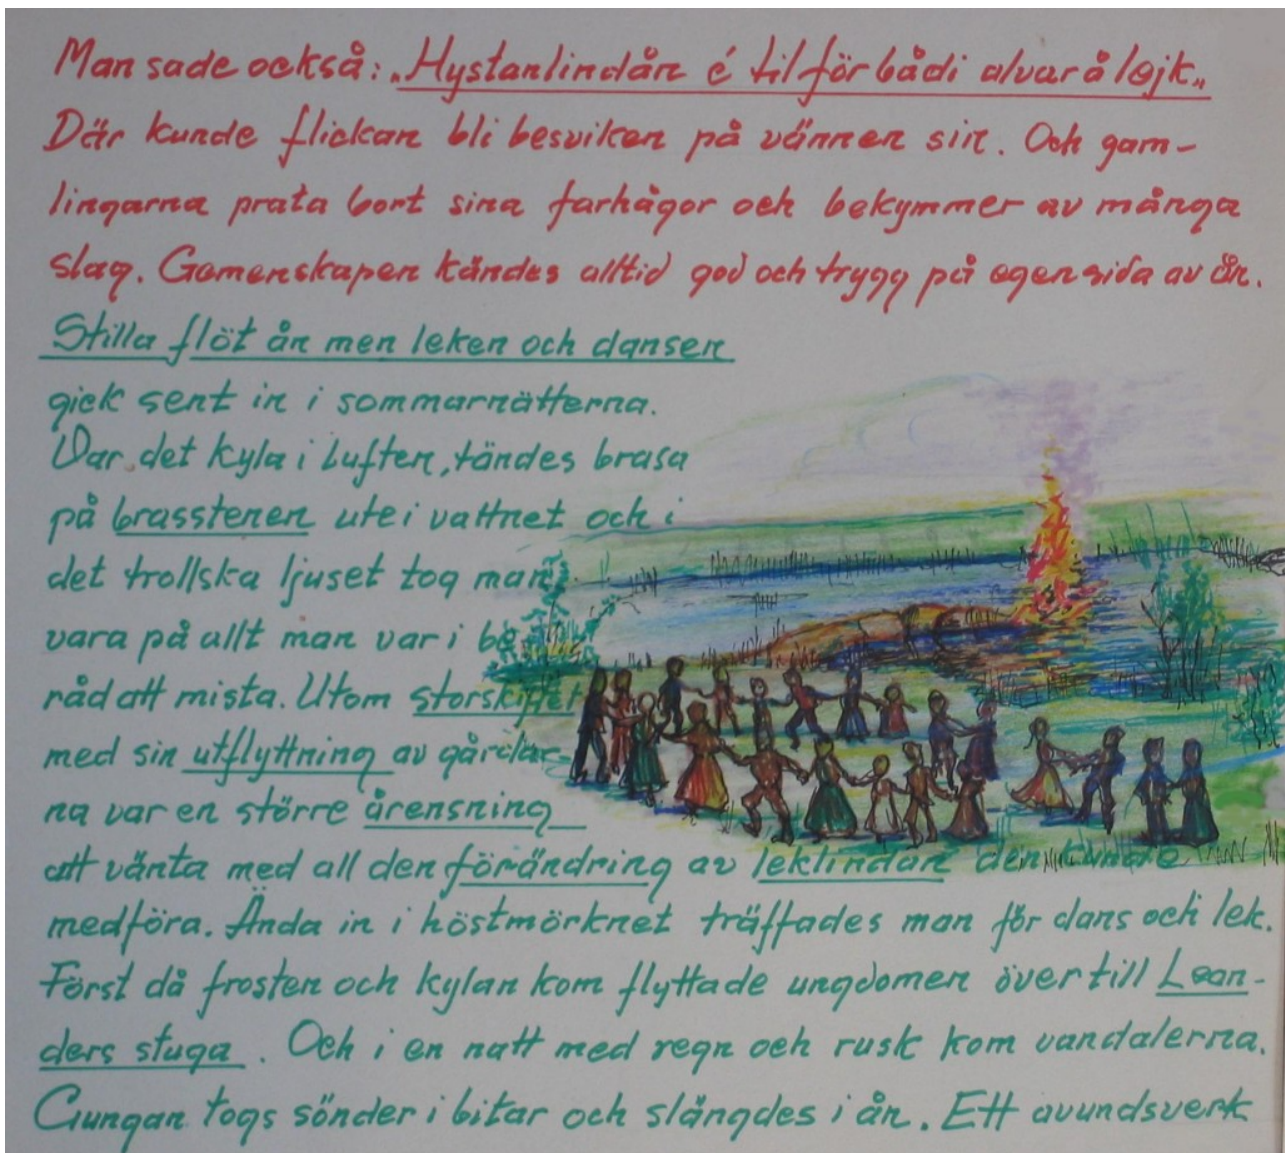 Man sade också: „Hystanlindån é til för bådi alvar å lejk„
Där kunde flickan bli besviken på vännen sin. Och gam-
lingarna prata bort sina farhågor och bekymmer av många
slag. Gemenskapen kändes alltid god och trygg på egen sida av ån.
Stilla flöt ån men leken och dansen
gick sent in i sommarnätterna.
Var det kyla i luften, tändes brasa
på brasstenen ute i vattnet och i
det trollska ljuset tog man
vara på allt man var i be
råd att mista. Utom storskiftet
med sin utflyttning av gårdar
na var en större årensning
att vänta med all den förändring av leklindan den kunde
medföra. Ända in i höstmörknet träffades man för dans och lek.
Först då frosten och kylan kom flyttade ungdomen över till Lean-
ders stuga. Och i en natt med regn och rusk kom vandalerna.
Gungan togs sönder i bitar och slängdes i ån. Ett avundsverk